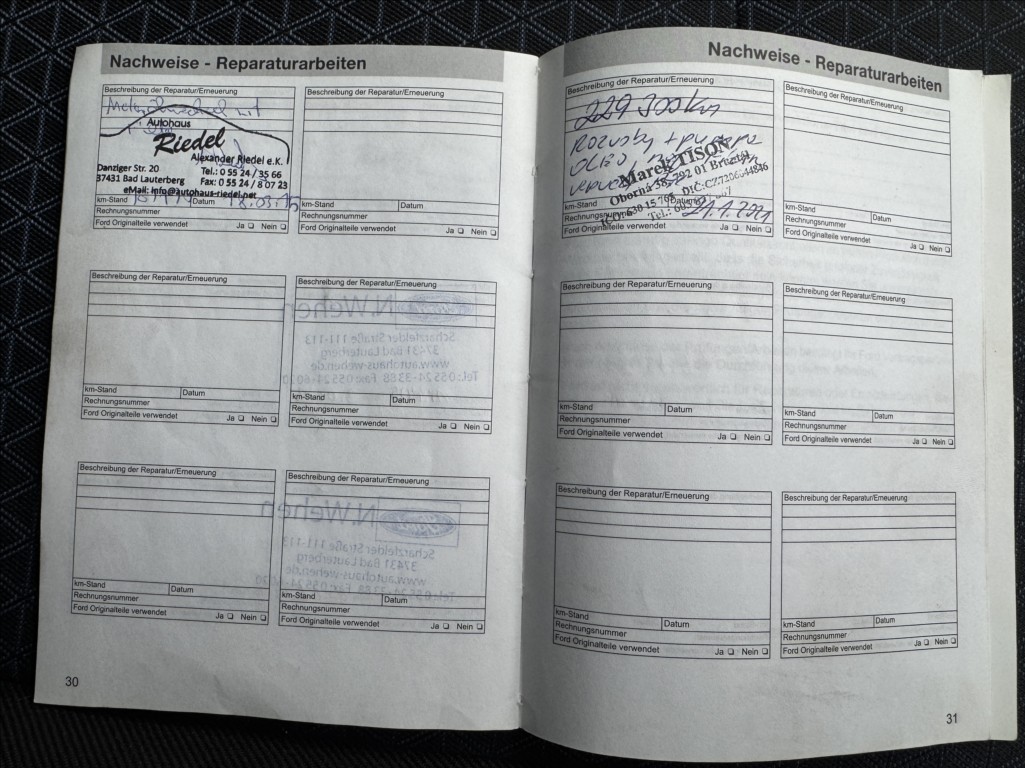 Nachweise - Reparaturarbeiten
Beschreibung der Reparatur/Erneuerung
Autohaus
Riedel
Alexander Riedel e.K.
Danziger Str. 20
Tel.: 0 55 24 / 35 66
37431 Bad Lauterberg
Fax: 0 55 24 / 8 07 23
eMail: info@autohaus-riedel.net
km-Stand Datum
Rechnungsnummer
Ford Originalteile verwendet Ja Nein
Beschreibung der Reparatur/Erneuerung
km-Stand Datum
Rechnungsnummer
Ford Originalteile verwendet Ja Nein
Beschreibung der Reparatur/Erneuerung
km-Stand Datum
Rechnungsnummer
Ford Originalteile verwendet Ja Nein
Beschreibung der Reparatur/Erneuerung
N.Wehen
Scharzfelder Straße 111-113
37431 Bad Lauterberg
www.autohaus-wehen.de
km-Stand Datum
Rechnungsnummer
Ford Originalteile verwendet Ja Nein
Beschreibung der Reparatur/Erneuerung
km-Stand Datum
Rechnungsnummer
Ford Originalteile verwendet Ja Nein
Beschreibung der Reparatur/Erneuerung
N.Wehen
Scharzfelder Straße 111-113
37431 Bad Lauterberg
www.autohaus-wehen.de
km-Stand Datum
Rechnungsnummer
Ford Originalteile verwendet Ja Nein
30
Nachweise - Reparaturarbeiten
Beschreibung der Reparatur/Erneuerung
229 300 km
Marek TISON
Oborná 38, 792 01 Bruntál
km-Stand Datum
Rechnungsnummer
21.1.2021
Ford Originalteile verwendet Ja Nein
Beschreibung der Reparatur/Erneuerung
km-Stand Datum
Rechnungsnummer
Ford Originalteile verwendet Ja Nein
Beschreibung der Reparatur/Erneuerung
km-Stand Datum
Rechnungsnummer
Ford Originalteile verwendet Ja Nein
Beschreibung der Reparatur/Erneuerung
km-Stand Datum
Rechnungsnummer
Ford Originalteile verwendet Ja Nein
Beschreibung der Reparatur/Erneuerung
km-Stand Datum
Rechnungsnummer
Ford Originalteile verwendet Ja Nein
Beschreibung der Reparatur/Erneuerung
km-Stand Datum
Rechnungsnummer
Ford Originalteile verwendet Ja Nein
31